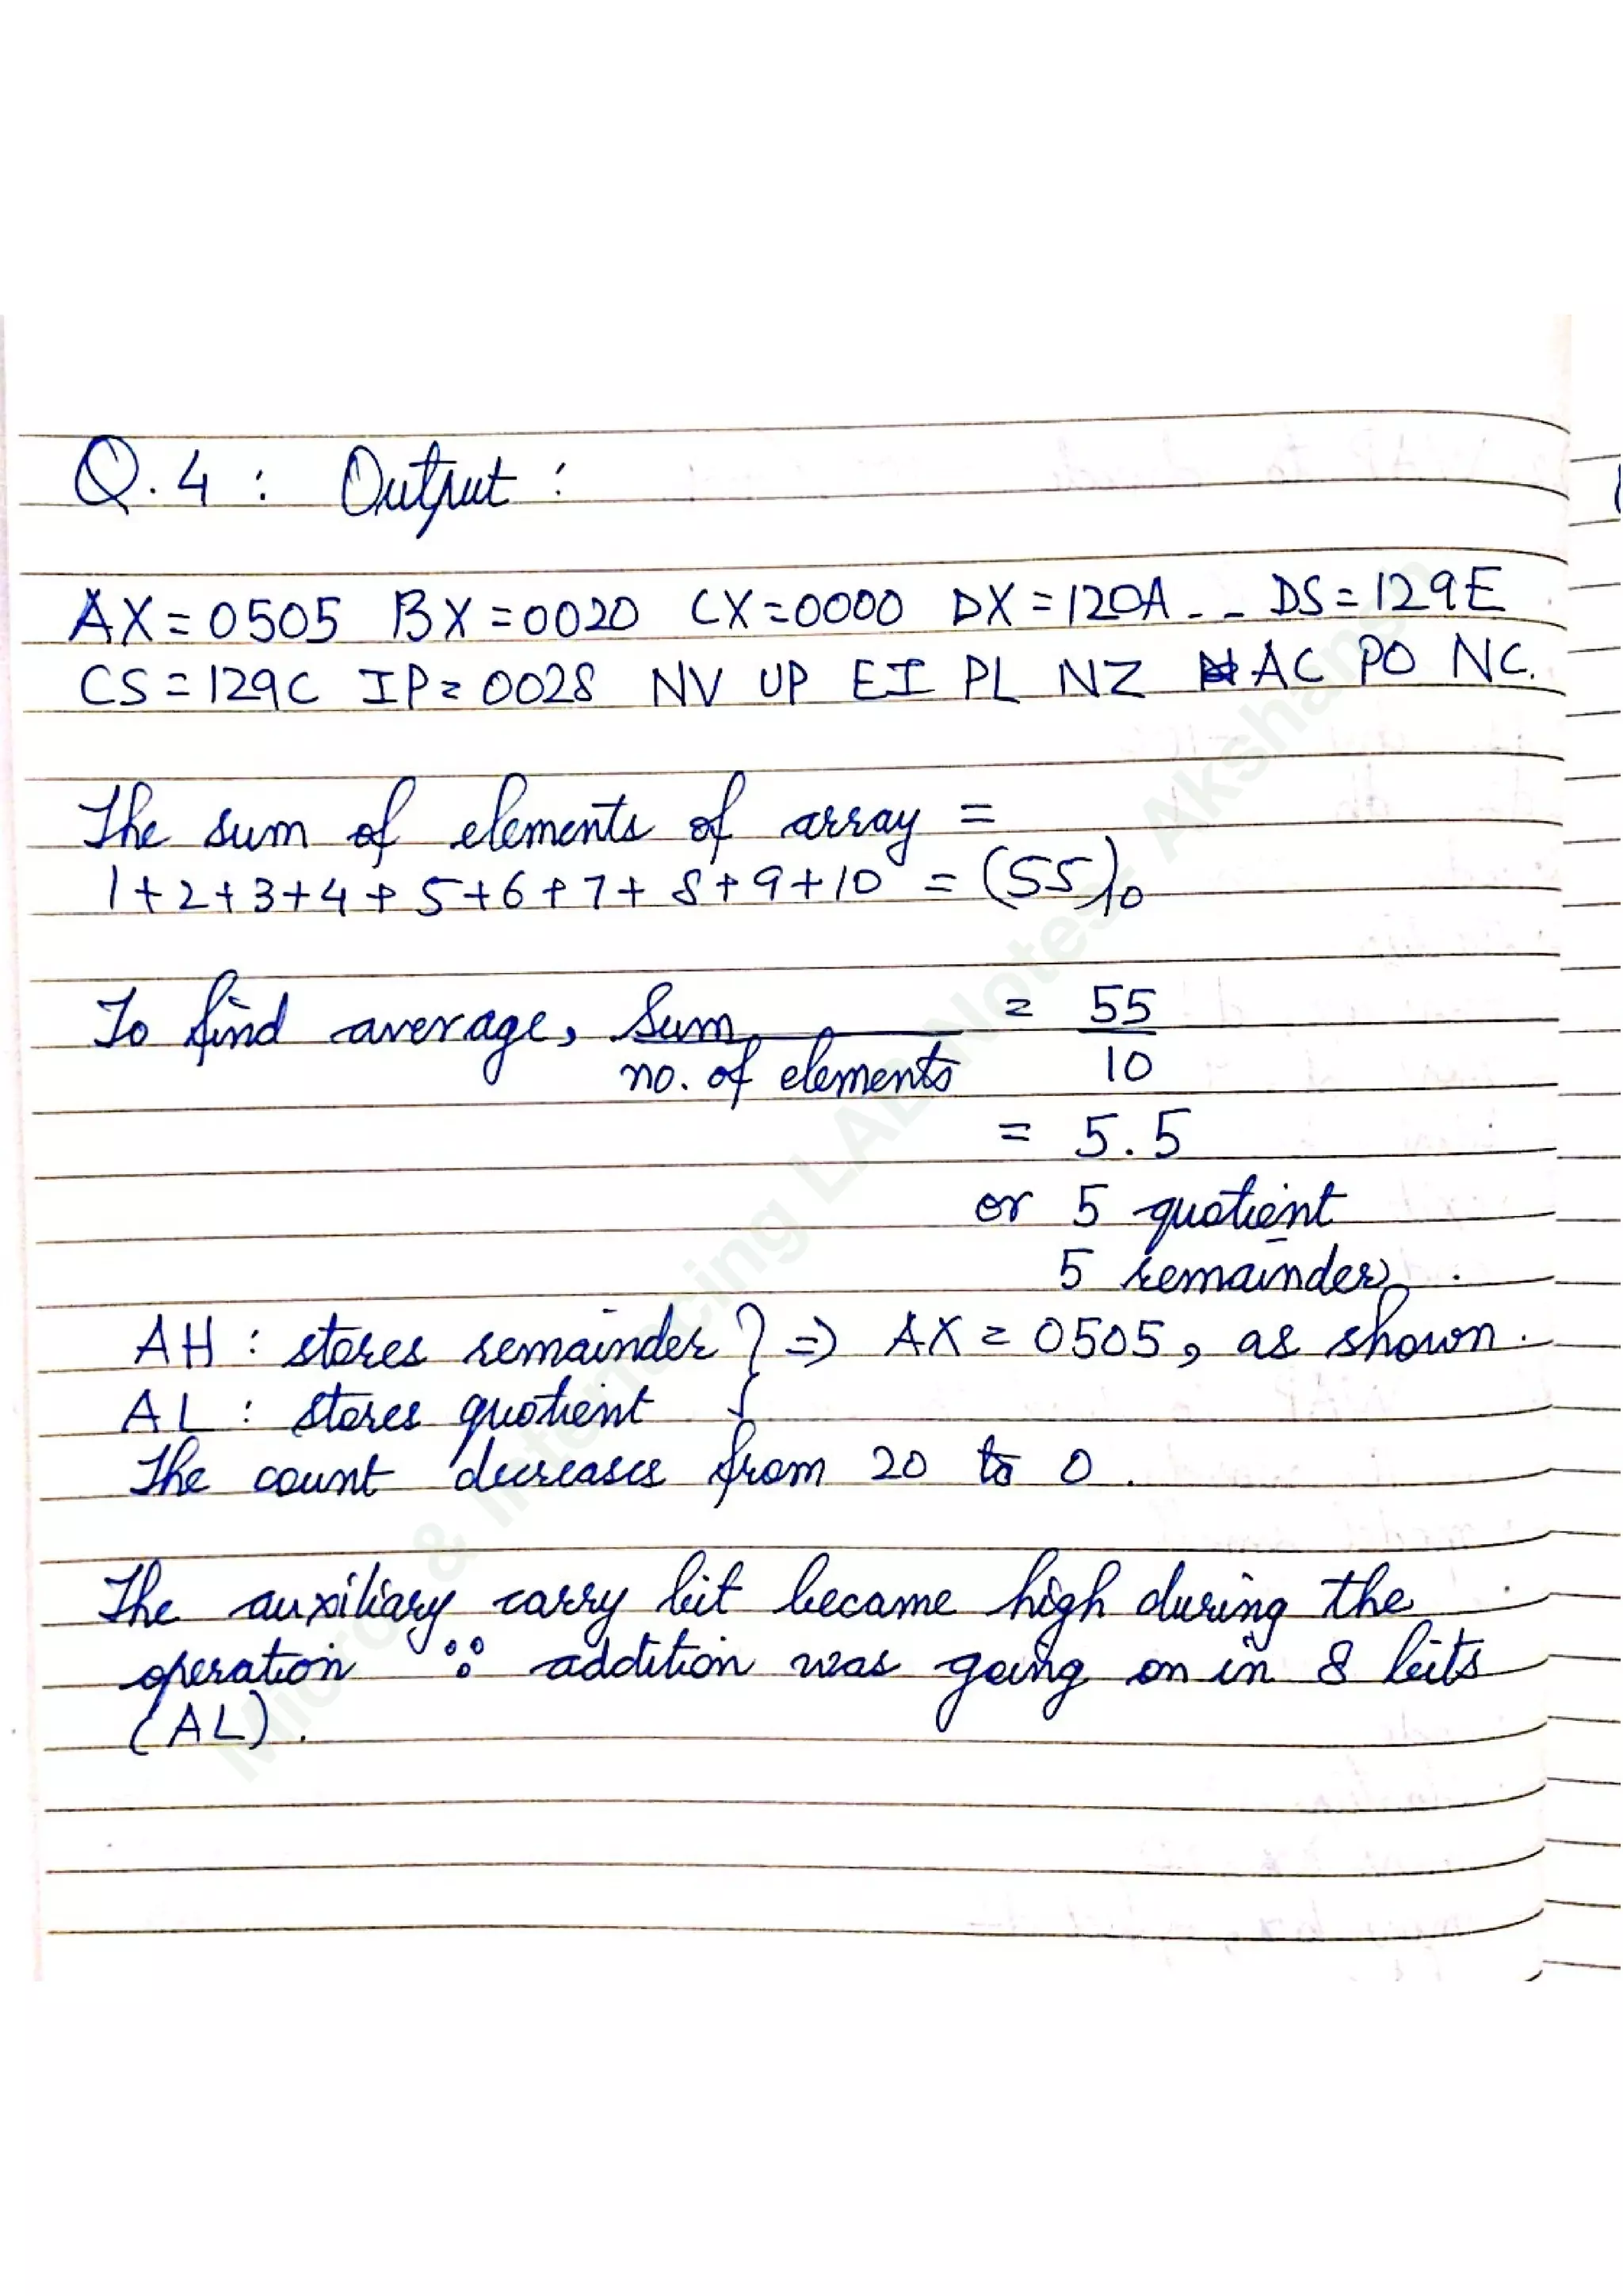 Q.4 : Output :
AX=0505 BX=0020 CX=0000 DX=120A -- DS=129E
CS=129C IP=0028 NV UP EI PL NZ AC PO NC.
The sum of elements of array =
1+2+3+4+5+6+7+8+9+10 = (55)10
To find average, Sum = 55
no. of elements 10
= 5.5
or 5 quotient
5 remainder.
AH : stores remainder } => AX = 0505, as shown.
AL : stores quotient
The count decreases from 20 to 0.
The auxiliary carry bit became high during the
operation ∵ addition was going on in 8 bits
(AL).
Micro & Interfacing LAB Notes- Akshansh